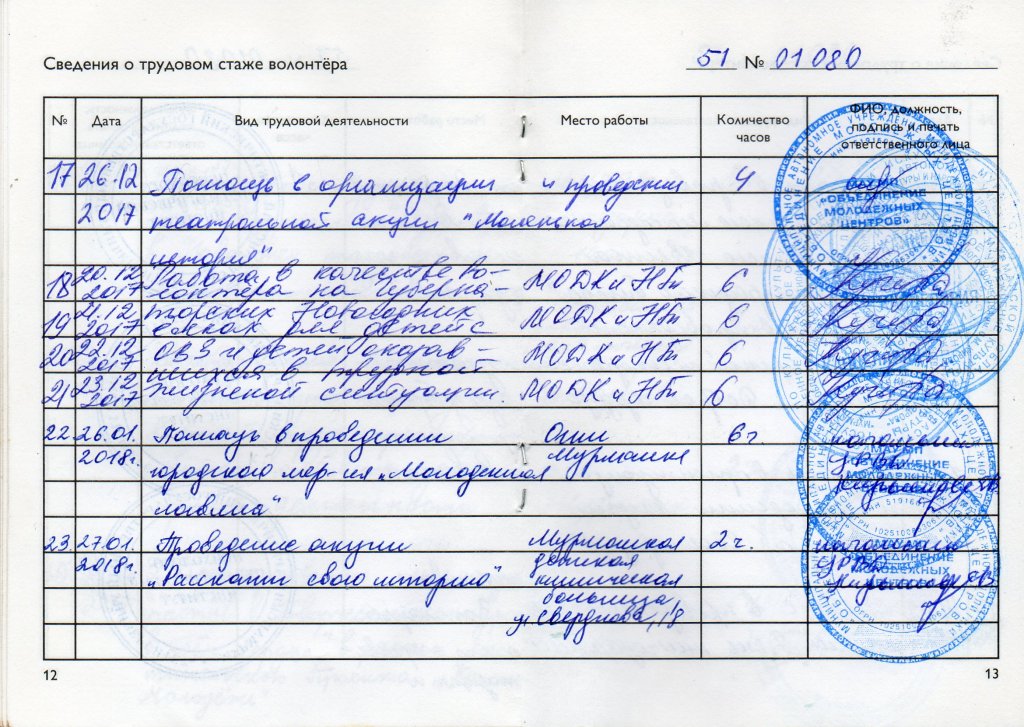 Сведения о трудовом стаже волонтёра
51 № 01080
№ Дата Вид трудовой деятельности Место работы Количество часов ФИО, должность, подпись и печать ответственного лица
17 26.12 Помощь в организации и проведении 4
2017 театральной акции "Маленькая
история"
18 20.12 2017 Работа в качестве во- МОДК и НТ 6 Кучура
лонтера на Губерна-
19 21.12 2017 торских Новогодних МОДК и НТ 6 Кучура
ёлках для детей с
20 22.12 2017 ОВЗ и детей оказав- МОДК и НТ 6 Кучура
шихся в трудной
21 23.12 2017 жизненной ситуации. МОДК и НТ 6 Кучура
22. 26.01. Помощь в проведении Огни 6 ч. начальник
2018г. городского мер-ия „Молодежная Мурманска
лавина“
23. 27.01. Проведение акции Мурманская 2 ч. начальник
2018г. „Расскажи свою историю“ детская
клиническая
больница
ул Свердлова, 18
«ОБЪЕДИНЕНИЕ
МОЛОДЕЖНЫХ
ЦЕНТРОВ»
12
13